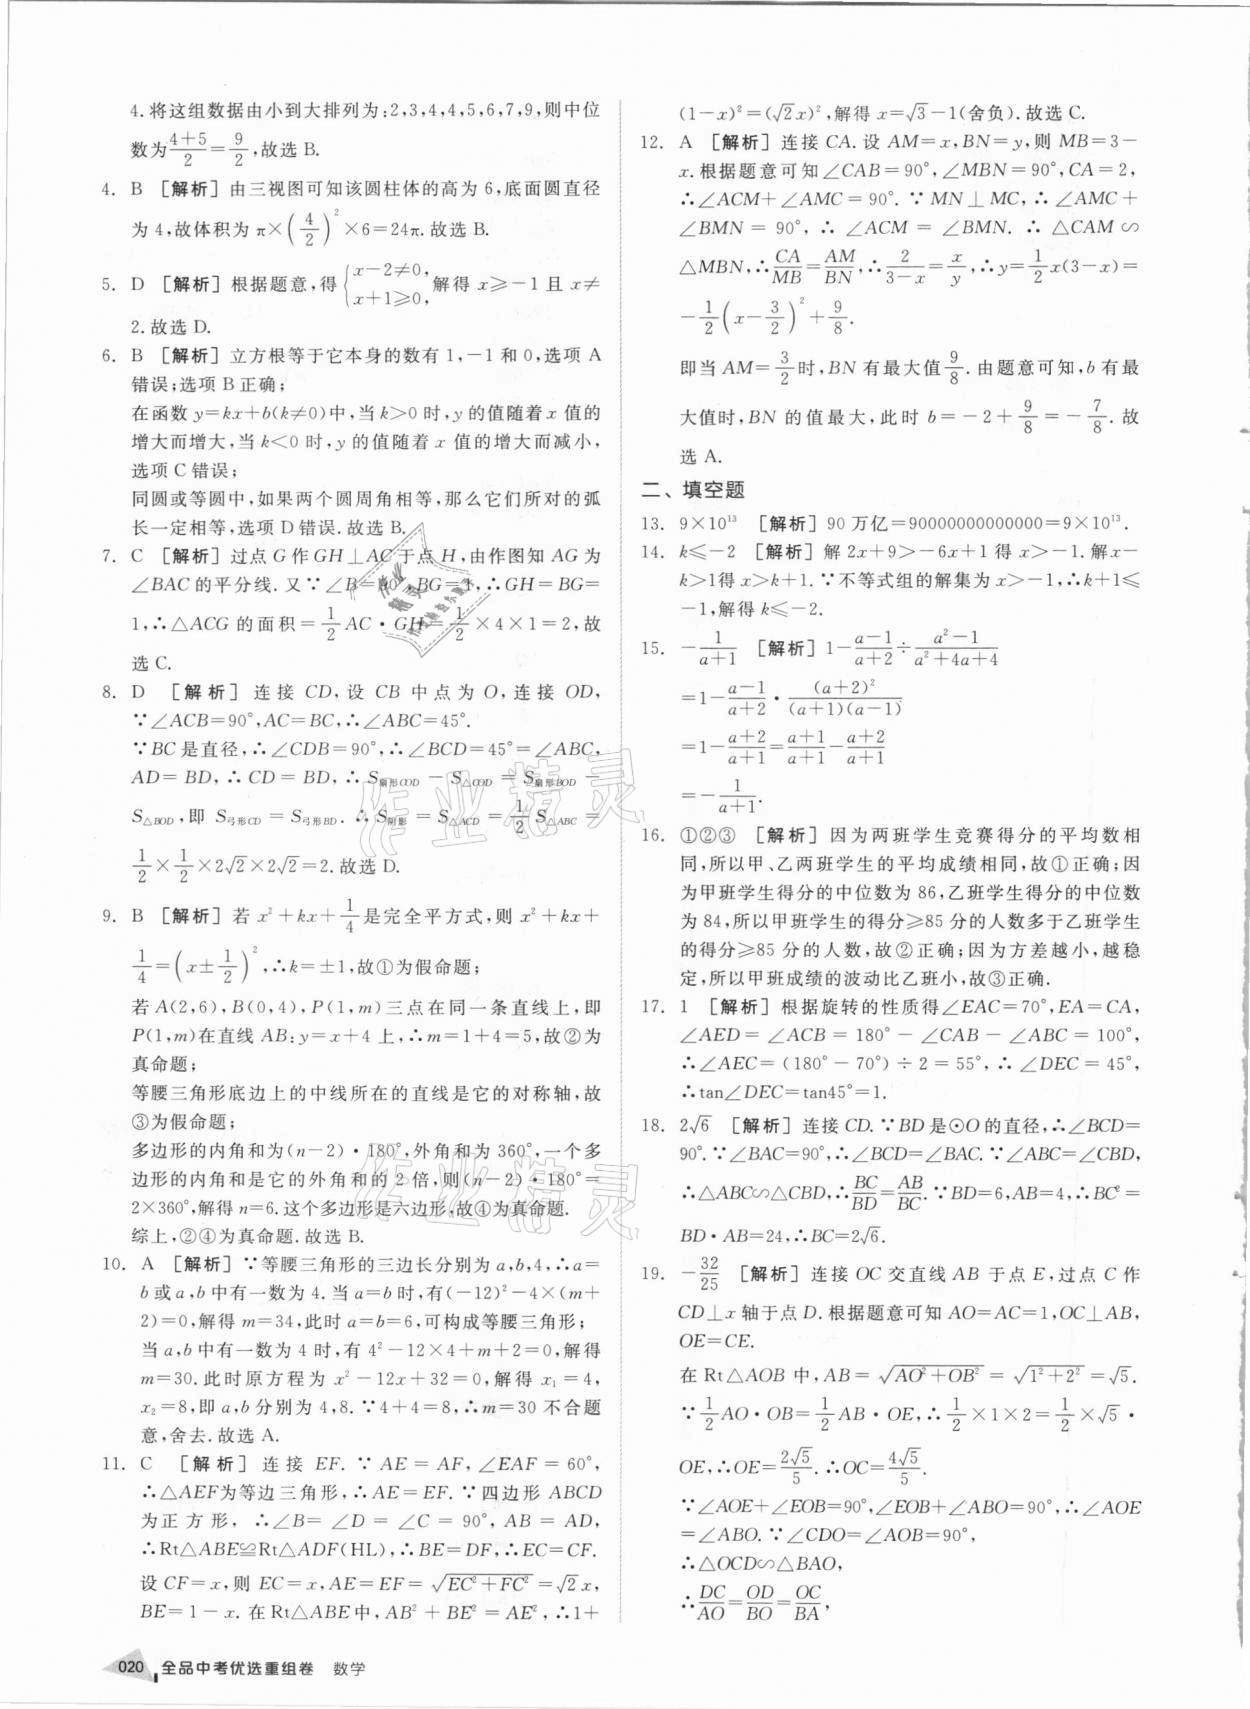 4.将这组数据由小到大排列为:2,3,4,4,5,6,7,9,则中位
数为(4+5)/2=9/2,故选 B.
4. B [解析] 由三视图可知该圆柱体的高为 6,底面圆直径
为 4,故体积为 π×(4/2)²×6=24π.故选 B.
5. D [解析] 根据题意,得{x-2≠0, x+1≥0,解得 x≥-1 且 x≠
2.故选 D.
6. B [解析] 立方根等于它本身的数有 1,-1 和 0,选项 A
错误;选项 B 正确;
在函数 y=kx+b(k≠0)中,当 k>0 时,y 的值随着 x 值的
增大而增大,当 k<0 时,y 的值随着 x 值的增大而减小,
选项 C 错误;
同圆或等圆中,如果两个圆周角相等,那么它们所对的弧
长一定相等,选项 D 错误.故选 B.
7. C [解析] 过点 G 作 GH⊥AC 于点 H,由作图知 AG 为
∠BAC 的平分线.又∵∠B=90°,BG=1,∴GH=BG=
1,∴△ACG 的面积=1/2 AC·GH=1/2×4×1=2,故
选 C.
8. D [解析] 连接 CD,设 CB 中点为 O,连接 OD,
∵∠ACB=90°,AC=BC,∴∠ABC=45°.
∵BC 是直径,∴∠CDB=90°,∴∠BCD=45°=∠ABC,
AD=BD,∴CD=BD,∴S扇形COD-S△COD=S扇形BOD-
S△BOD,即 S弓形CD=S弓形BD.∴S阴影=S△ACD=1/2 S△ABC=
1/2×1/2×2√2×2√2=2.故选 D.
9. B [解析] 若 x²+kx+1/4是完全平方式,则 x²+kx+
1/4=(x±1/2)²,∴k=±1,故①为假命题;
若 A(2,6),B(0,4),P(1,m)三点在同一条直线上,即
P(1,m)在直线 AB:y=x+4 上,∴m=1+4=5,故②为
真命题;
等腰三角形底边上的中线所在的直线是它的对称轴,故
③为假命题;
多边形的内角和为(n-2)·180°,外角和为 360°,一个多
边形的内角和是它的外角和的 2 倍,则(n-2)·180°=
2×360°,解得 n=6.这个多边形是六边形,故④为真命题.
综上,②④为真命题.故选 B.
10. A [解析] ∵等腰三角形的三边长分别为 a,b,4,∴a=
b 或 a,b 中有一数为 4.当 a=b 时,有(-12)²-4×(m+
2)=0,解得 m=34,此时 a=b=6,可构成等腰三角形;
当 a,b 中有一数为 4 时,有 4²-12×4+m+2=0,解得
m=30.此时原方程为 x²-12x+32=0,解得 x₁=4,
x₂=8,即 a,b 分别为 4,8.∵4+4=8,∴m=30 不合题
意,舍去.故选 A.
11. C [解析] 连接 EF.∵AE=AF,∠EAF=60°,
∴△AEF为等边三角形,∴AE=EF.∵四边形 ABCD
为正方形,∴∠B=∠D=∠C=90°,AB=AD,
∴Rt△ABE≌Rt△ADF(HL),∴BE=DF,∴EC=CF.
设 CF=x,则 EC=x,AE=EF=√(EC²+FC²)=√2x,
BE=1-x.在 Rt△ABE 中,AB²+BE²=AE²,∴1+
(1-x)²=(√2x)²,解得 x=√3-1(舍负).故选 C.
12. A [解析] 连接 CA.设 AM=x,BN=y,则 MB=3-
x.根据题意可知∠CAB=90°,∠MBN=90°,CA=2,
∴∠ACM+∠AMC=90°.∵MN⊥MC,∴∠AMC+
∠BMN=90°,∴∠ACM=∠BMN.∴△CAM∽
△MBN,∴CA/MB=AM/BN,∴2/(3-x)=x/y,∴y=1/2x(3-x)=
-1/2(x-3/2)²+9/8.
即当 AM=3/2时,BN 有最大值9/8.由题意可知,b 有最
大值时,BN 的值最大,此时 b=-2+9/8=-7/8.故
选 A.
二、填空题
13. 9×10¹³ [解析] 90 万亿=90000000000000=9×10¹³.
14. k≤-2 [解析] 解 2x+9>-6x+1 得 x>-1.解x-
k>1得 x>k+1.∵不等式组的解集为 x>-1,∴k+1≤
-1,解得 k≤-2.
15. -1/(a+1) [解析] 1-(a-1)/(a+2)÷(a²-1)/(a²+4a+4)
=1-(a-1)/(a+2)·(a+2)²/((a+1)(a-1))
=1-(a+2)/(a+1)=(a+1)/(a+1)-(a+2)/(a+1)
=-1/(a+1).
16. ①②③ [解析] 因为两班学生竞赛得分的平均数相
同,所以甲、乙两班学生的平均成绩相同,故①正确;因
为甲班学生得分的中位数为 86,乙班学生的中位数
为 84,所以甲班学生的得分≥85 分的人数多于乙班学生
的得分≥85 分的人数,故②正确;因为方差越小,越稳
定,所以甲班成绩的波动比乙班小,故③正确.
17. 1 [解析] 根据旋转的性质得∠EAC=70°,EA=CA,
∠AED=∠ACB=180°-∠CAB-∠ABC=100°,
∴∠AEC=(180°-70°)÷2=55°,∴∠DEC=45°,
∴tan∠DEC=tan45°=1.
18. 2√6 [解析] 连接 CD.∵BD 是⊙O 的直径,∴∠BCD=
90°.∵∠BAC=90°,∴∠BCD=∠BAC.∵∠ABC=∠CBD,
∴△ABC∽△CBD,∴BC/BD=AB/BC.∵BD=6,AB=4,∴BC²=
BD·AB=24,∴BC=2√6.
19. -32/25 [解析] 连接 OC 交直线 AB 于点 E,过点 C 作
CD⊥x 轴于点 D.根据题意可知 AO=AC=1,OC⊥AB,
OE=CE.
在 Rt△AOB 中,AB=√(AO²+OB²)=√(1²+2²)=√5.
∵1/2 AO·OB=1/2 AB·OE,∴1/2×1×2=1/2×√5·
OE,∴OE=2√5/5.∴OC=4√5/5.
∵∠AOE+∠EOB=90°,∠EOB+∠ABO=90°,∴∠AOE
=∠ABO.∵∠CDO=∠AOB=90°,
∴△OCD∽△BAO,
∴DC/AO=OD/BO=OC/BA,
020 全品中考优选重组卷 数学
作业精灵
作业精灵